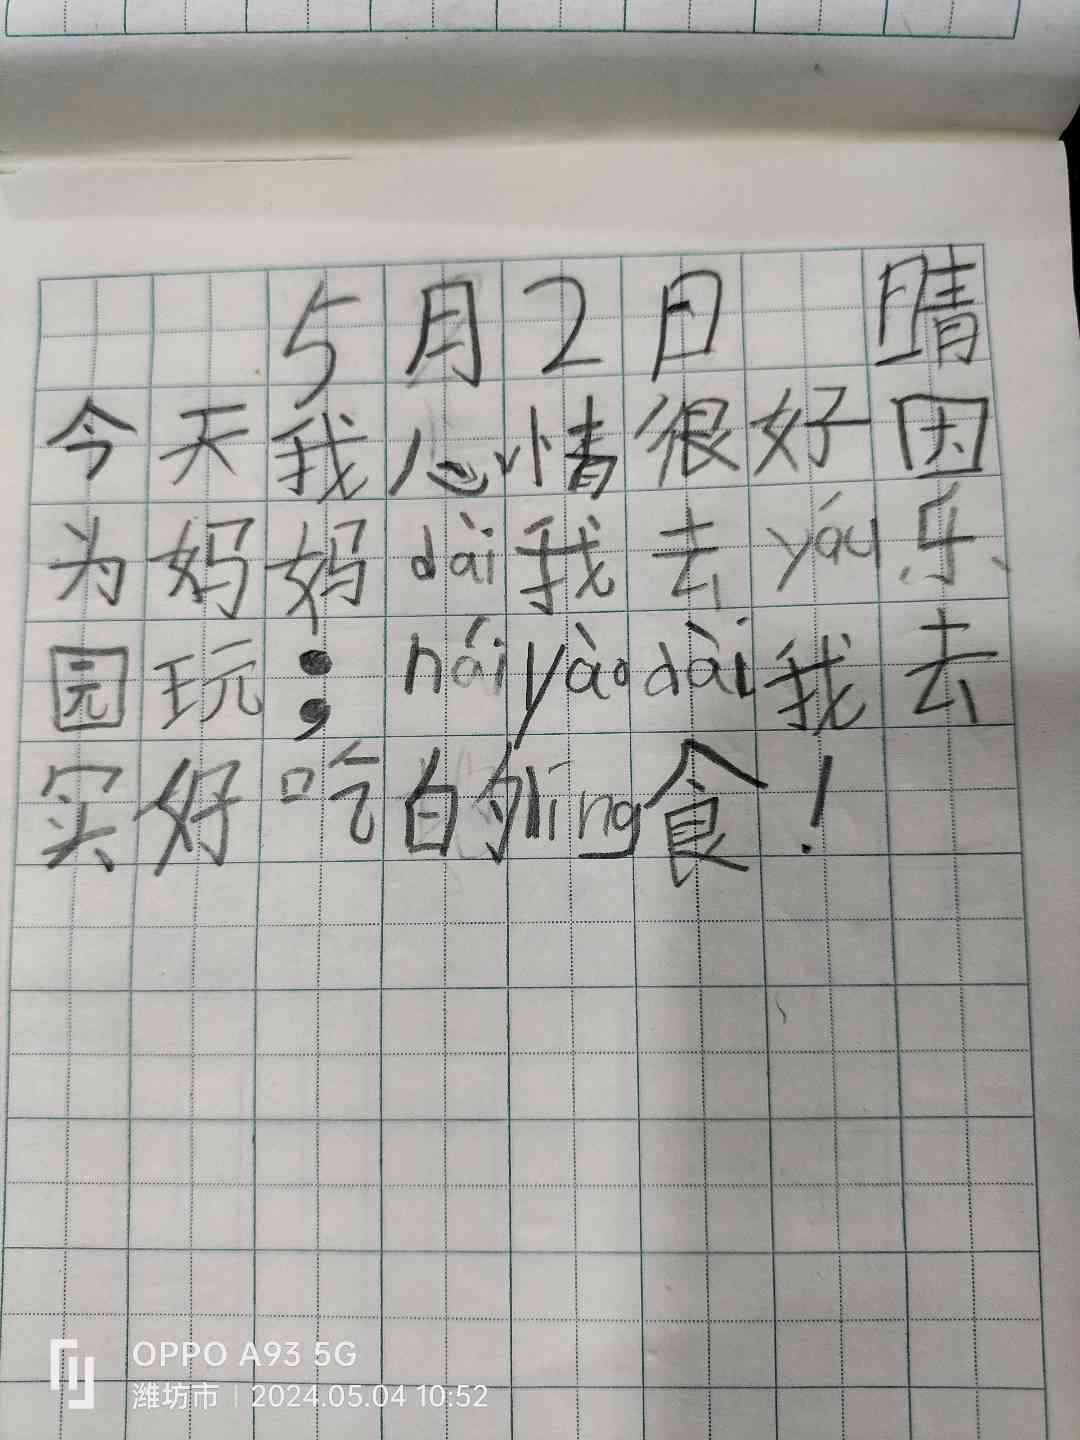 5月2日 晴
今天我心情很好因
为妈妈dài我去yóu乐
园玩；hái yào dài我去
买好吃的líng食！
OPPO A93 5G
潍坊市 | 2024.05.04 10:52